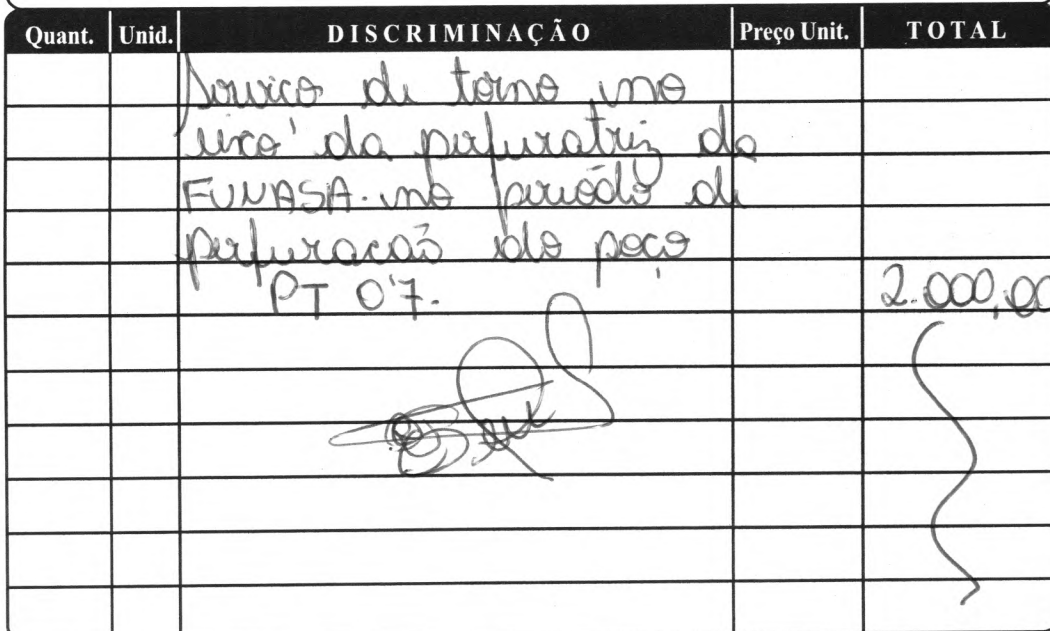 Quant. Unid. DISCRIMINAÇÃO Preço Unit. TOTAL
Servico de torno no
eixo da perfuratriz da
FUNASA. no periodo de
perfuracaõ do poço
PT 07. 2.000,00